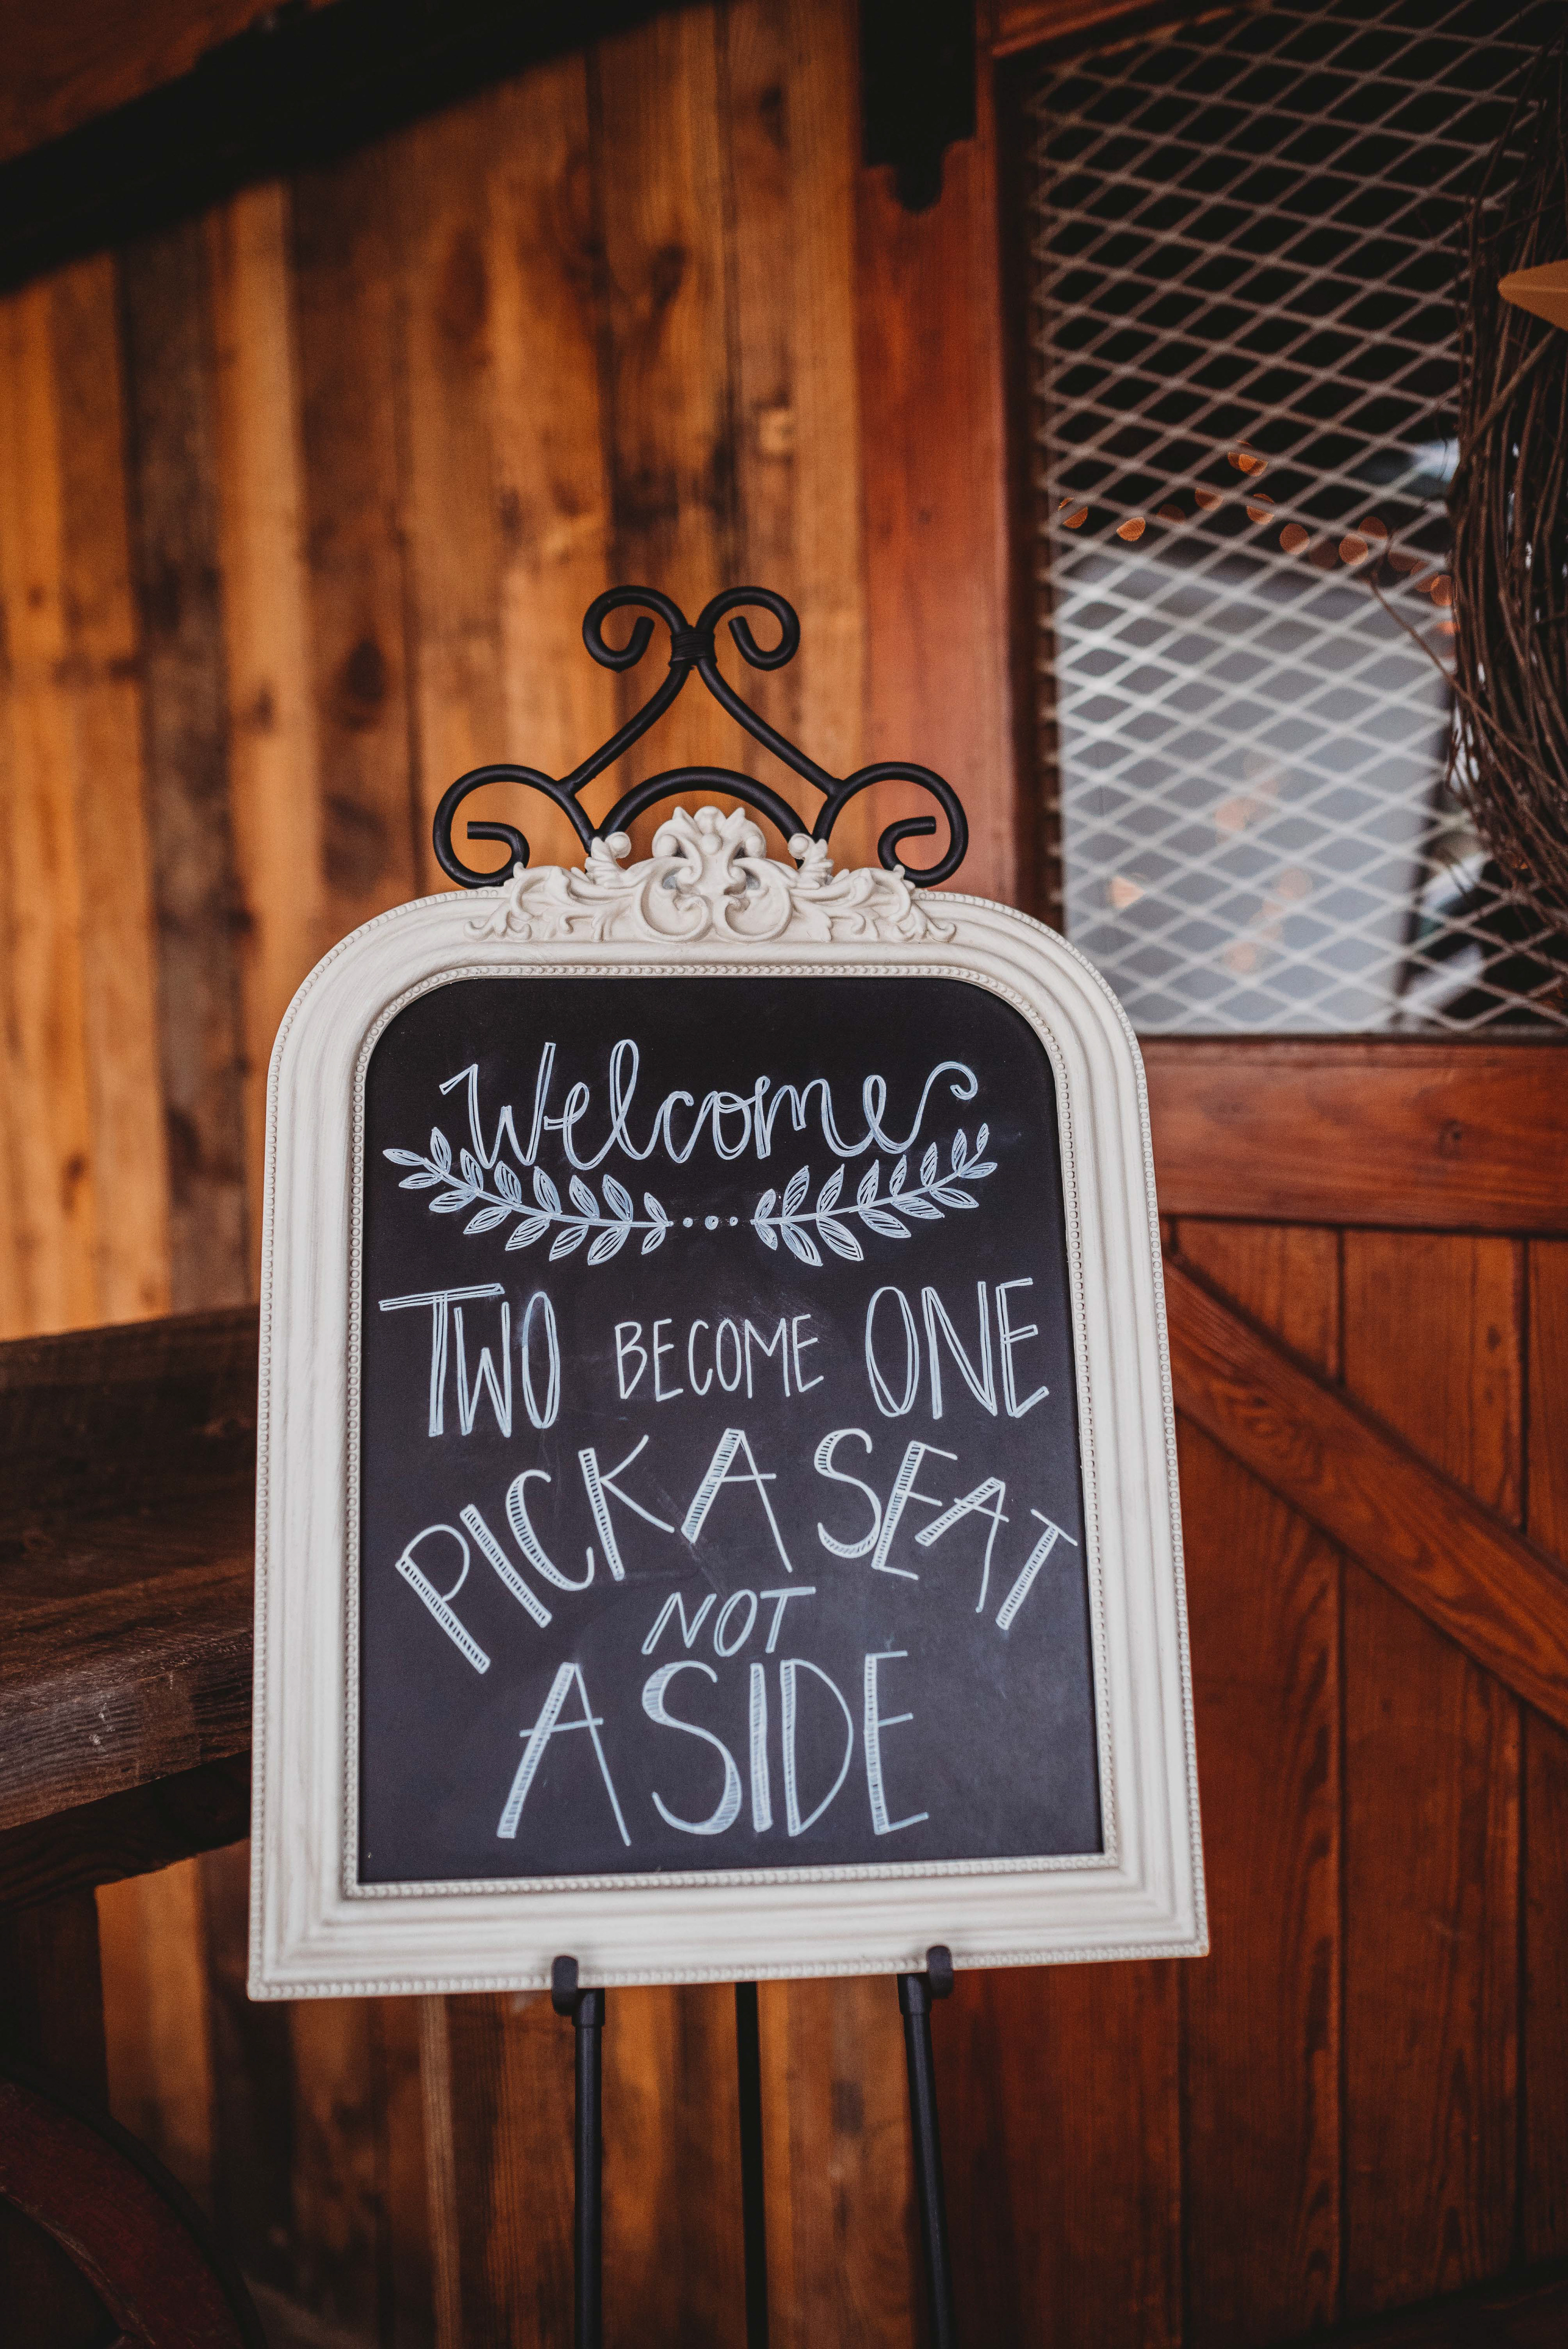 Welcome
TWO BECOME ONE
PICK A SEAT
NOT
A SIDE